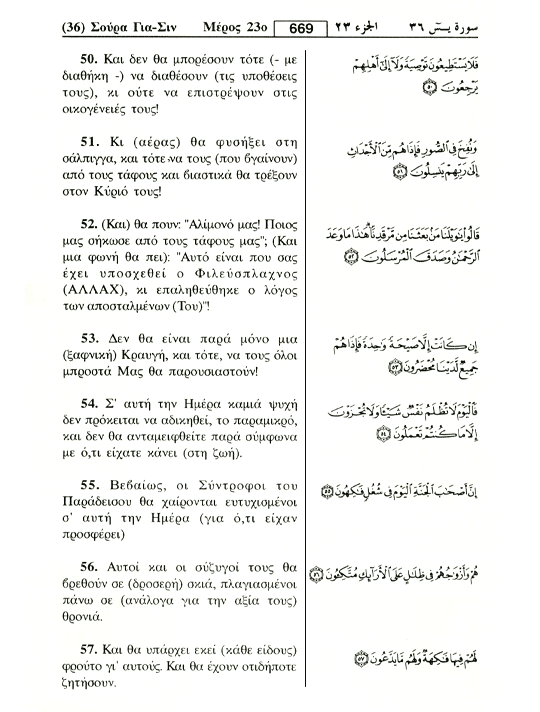 (36) Σούρα Για-Σιν Μέρος 23ο 669 الجزء ٢٣ سورة يس ٣٦
50. Και δεν θα μπορέσουν τότε (- με
διαθήκη -) να διαθέσουν (τις υποθέσεις
τους), κι ούτε να επιστρέψουν στις
οικογένειές τους!
فَلَا يَسْتَطِيعُونَ تَوْصِيَةً وَلَا إِلَىٰ أَهْلِهِمْ
يَرْجِعُونَ ۝٥٠
51. Κι (αέρας) θα φυσήξει στη
σάλπιγγα, και τότε να τους (που ϐγαίνουν)
από τους τάφους και ϐιαστικά θα τρέξουν
στον Κύριό τους!
وَنُفِخَ فِي الصُّورِ فَإِذَا هُم مِّنَ الْأَجْدَاثِ
إِلَىٰ رَبِّهِمْ يَنسِلُونَ ۝٥١
52. (Και) θα πουν: "Αλίμονό μας! Ποιος
μας σήκωσε από τους τάφους μας"; (Και
μια φωνή θα πει): "Αυτό είναι που σας
έχει υποσχεθεί ο Φιλεύσπλαχνος
(ΑΛΛΑΧ), κι επαληθεύθηκε ο λόγος
των αποσταλμένων (Του)"!
قَالُوا يَا وَيْلَنَا مَن بَعَثَنَا مِن مَّرْقَدِنَا ۗ هَٰذَا مَا وَعَدَ
الرَّحْمَٰنُ وَصَدَقَ الْمُرْسَلُونَ ۝٥٢
53. Δεν θα είναι παρά μόνο μια
(ξαφνική) Κραυγή, και τότε, να τους όλοι
μπροστά Μας θα παρουσιαστούν!
إِن كَانَتْ إِلَّا صَيْحَةً وَاحِدَةً فَإِذَا هُمْ
جَمِيعٌ لَّدَيْنَا مُحْضَرُونَ ۝٥٣
54. Σ' αυτή την Ημέρα καμιά ψυχή
δεν πρόκειται να αδικηθεί, το παραμικρό,
και δεν θα ανταμειφθείτε παρά σύμφωνα
με ό,τι είχατε κάνει (στη ζωή).
فَالْيَوْمَ لَا تُظْلَمُ نَفْسٌ شَيْئًا وَلَا تُجْزَوْنَ
إِلَّا مَا كُنتُمْ تَعْمَلُونَ ۝٥٤
55. Βεϐαίως, οι Σύντροφοι του
Παράδεισου θα χαίρονται ευτυχισμένοι
σ' αυτή την Ημέρα (για ό,τι είχαν
προσφέρει)
إِنَّ أَصْحَابَ الْجَنَّةِ الْيَوْمَ فِي شُغُلٍ فَاكِهُونَ ۝٥٥
56. Αυτοί και οι σύζυγοί τους θα
ϐρεθούν σε (δροσερή) σκιά, πλαγιασμένοι
πάνω σε (ανάλογα για την αξία τους)
θρονιά.
هُمْ وَأَزْوَاجُهُمْ فِي ظِلَالٍ عَلَى الْأَرَائِكِ مُتَّكِئُونَ ۝٥٦
57. Και θα υπάρχει εκεί (κάθε είδους)
φρούτο γι' αυτούς. Και θα έχουν οτιδήποτε
ζητήσουν.
لَهُمْ فِيهَا فَاكِهَةٌ وَلَهُم مَّا يَدَّعُونَ ۝٥٧